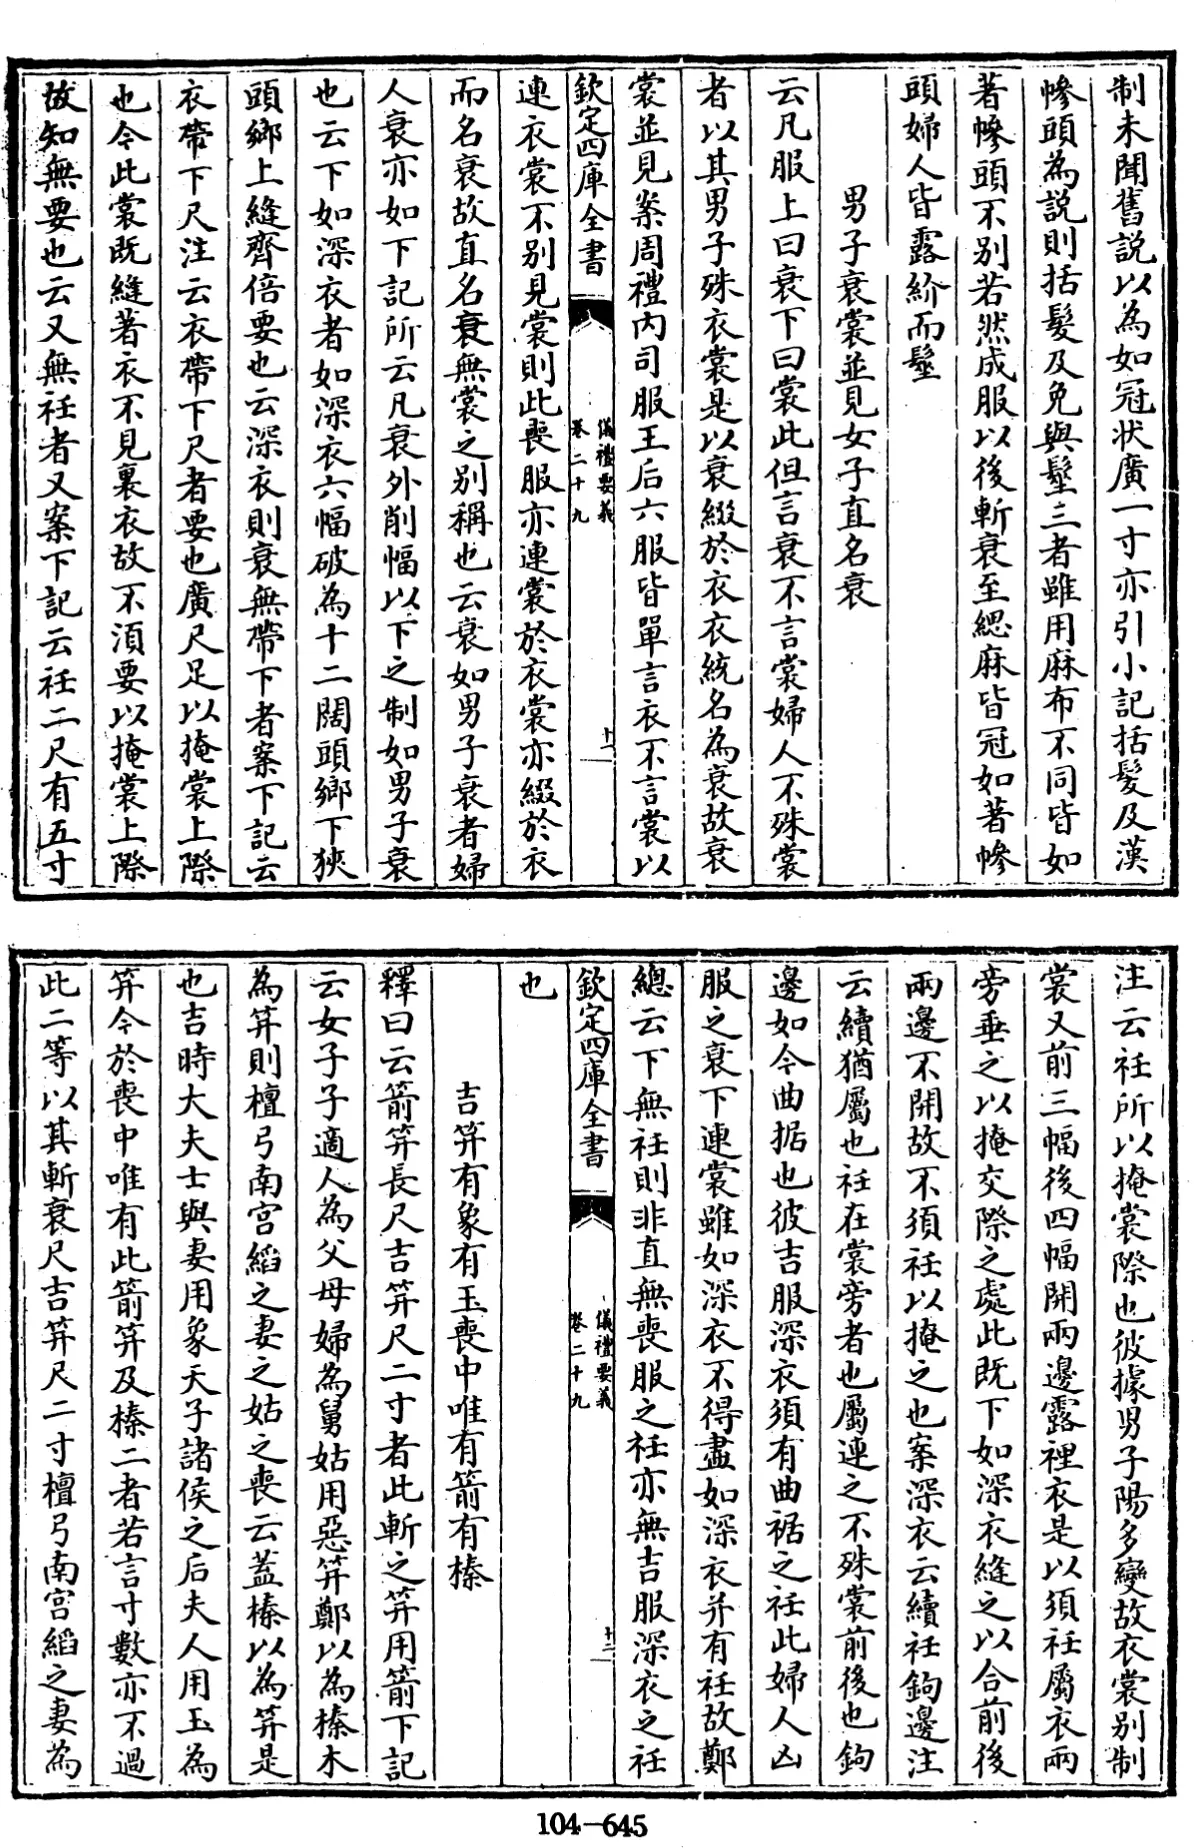 制未聞舊説以為如冠状廣一寸亦引小記括髮及漢
幓頭為説則括髮及免與髽三者雖用麻布不同皆如
著幓頭不别若然成服以後斬衰至緦麻皆冠如著幓
頭婦人皆露紒而髽
男子衰裳並見女子直名衰
云凡服上曰衰下曰裳此但言衰不言裳婦人不殊裳
者以其男子殊衣裳是以衰綴於衣衣統名為衰故衰
裳並見案周禮内司服王后六服皆單言衣不言裳以
欽定四庫全書
儀禮要義
卷二十九
十一
連衣裳不别見裳則此喪服亦連裳於衣裳亦綴於衣
而名衰故直名衰無裳之别稱也云衰如男子衰者婦
人衰亦如下記所云凡衰外削幅以下之制如男子衰
也云下如深衣者如深衣六幅破為十二闊頭鄉下狹
頭鄉上縫齊倍要也云深衣則衰無帶下者案下記云
衣帶下尺注云衣帶下尺者要也廣尺足以掩裳上際
也今此裳既縫著衣不見裏衣故不湏要以掩裳上際
故知無要也云又無衽者又案下記云衽二尺有五寸
注云衽所以掩裳際也彼據男子陽多變故衣裳别制
裳又前三幅後四幅開兩邊露裡衣是以須衽屬衣兩
旁垂之以掩交際之處此既下如深衣縫之以合前後
兩邊不開故不須衽以掩之也案深衣云續衽鉤邊注
云續猶屬也衽在裳旁者也屬連之不殊裳前後也鉤
邊如今曲裾也彼吉服深衣須有曲裾之衽此婦人凶
服之衰下連裳雖如深衣不得盡如深衣并有衽故鄭
總云下無衽則非直無喪服之衽亦無吉服深衣之衽
欽定四庫全書
儀禮要義
卷二十九
十二
也
吉笄有象有玉喪中唯有箭有榛
釋曰云箭笄長尺吉笄尺二寸者此斬之笄用箭下記
云女子子適人為父母婦為舅姑用惡笄鄭以為榛木
為笄則檀弓南宫縚之妻之姑之喪云蓋榛以為笄是
也吉時大夫士與妻用象天子諸侯之后夫人用玉為
笄今於喪中唯有此箭笄及榛二者若言寸數亦不過
此二等以其斬衰尺吉笄尺二寸檀弓南宫縚之妻為
104-645